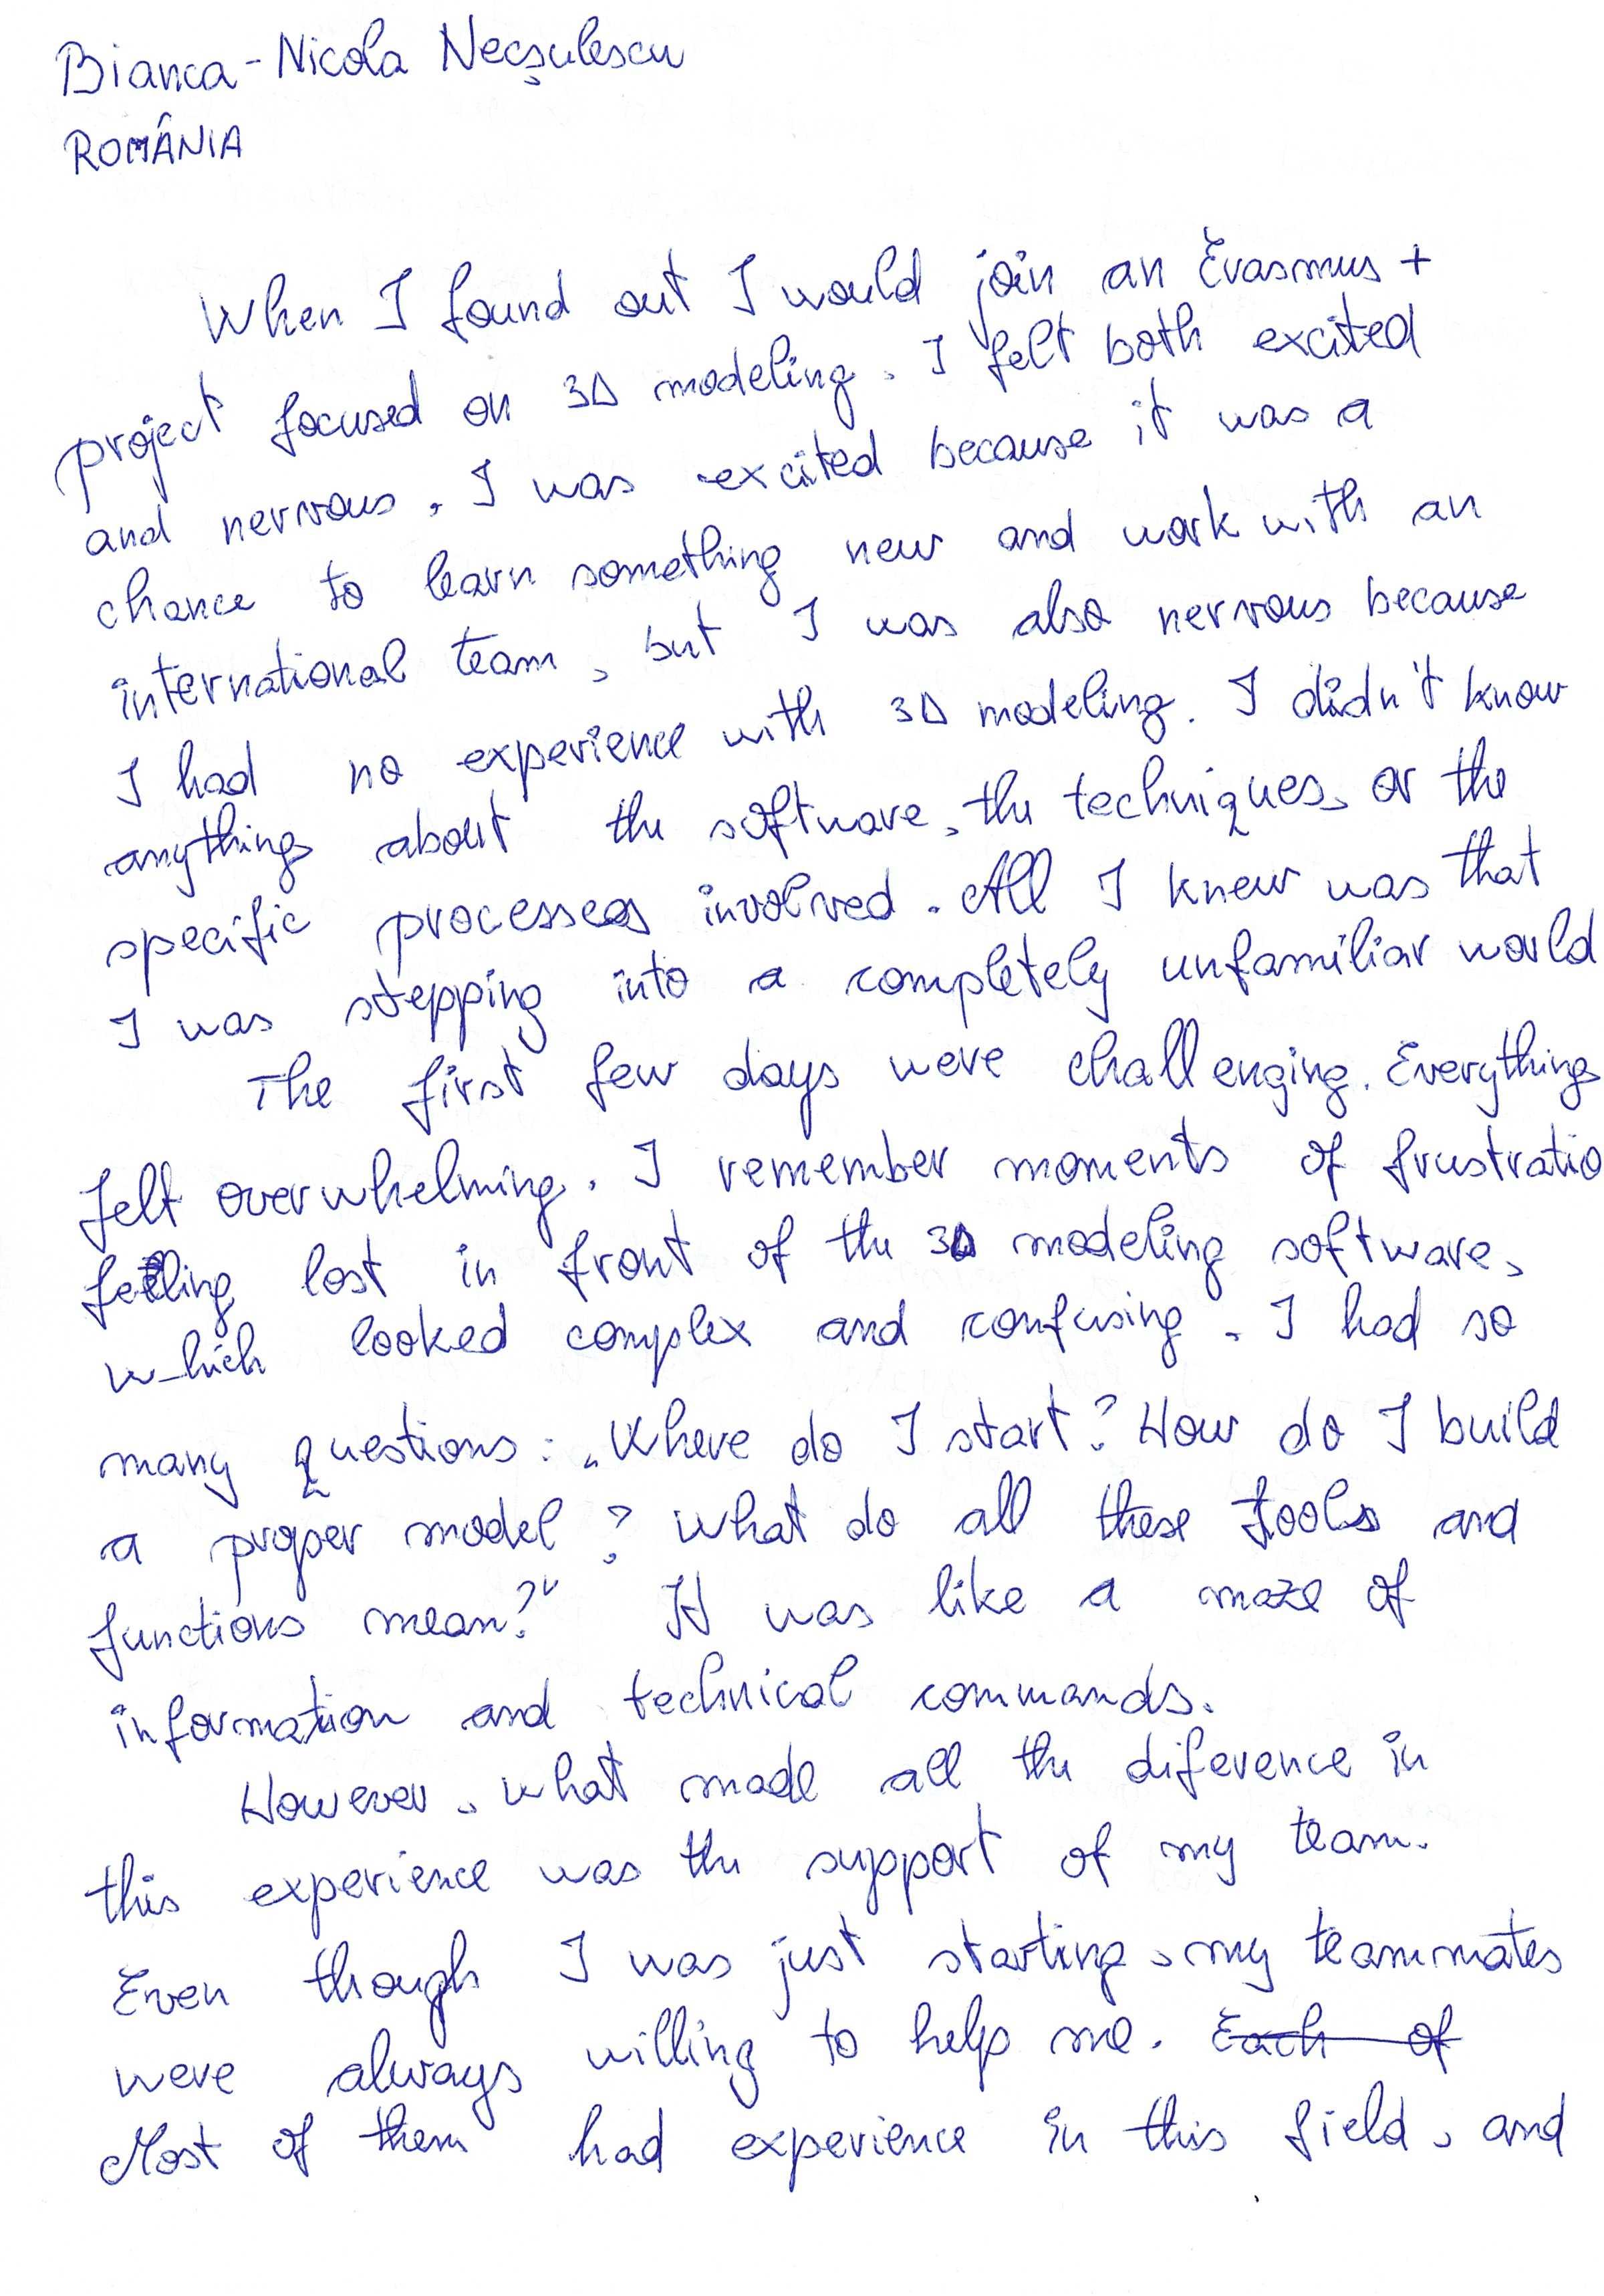 Bianca-Nicola Necșulescu
ROMÂNIA
When I found out I would join an Erasmus +
project focused on 3D modeling. I felt both excited
and nervous. I was excited because it was a
chance to learn something new and work with an
international team, but I was also nervous because
I had no experience with 3D modeling. I didn't know
anything about the software, the techniques, or the
specific processes involved. All I knew was that
I was stepping into a completely unfamiliar world
The first few days were challenging. Everything
felt overwhelming. I remember moments of frustratio
feeling lost in front of the 3D modeling software,
which looked complex and confusing. I had so
many questions: „Where do I start? How do I build
a proper model? What do all these tools and
functions mean?" It was like a maze of
information and technical commands.
However, what made all the diference in
this experience was the support of my team.
Even though I was just starting, my teammates
were always willing to help me. Each of
Most of them had experience in this field, and